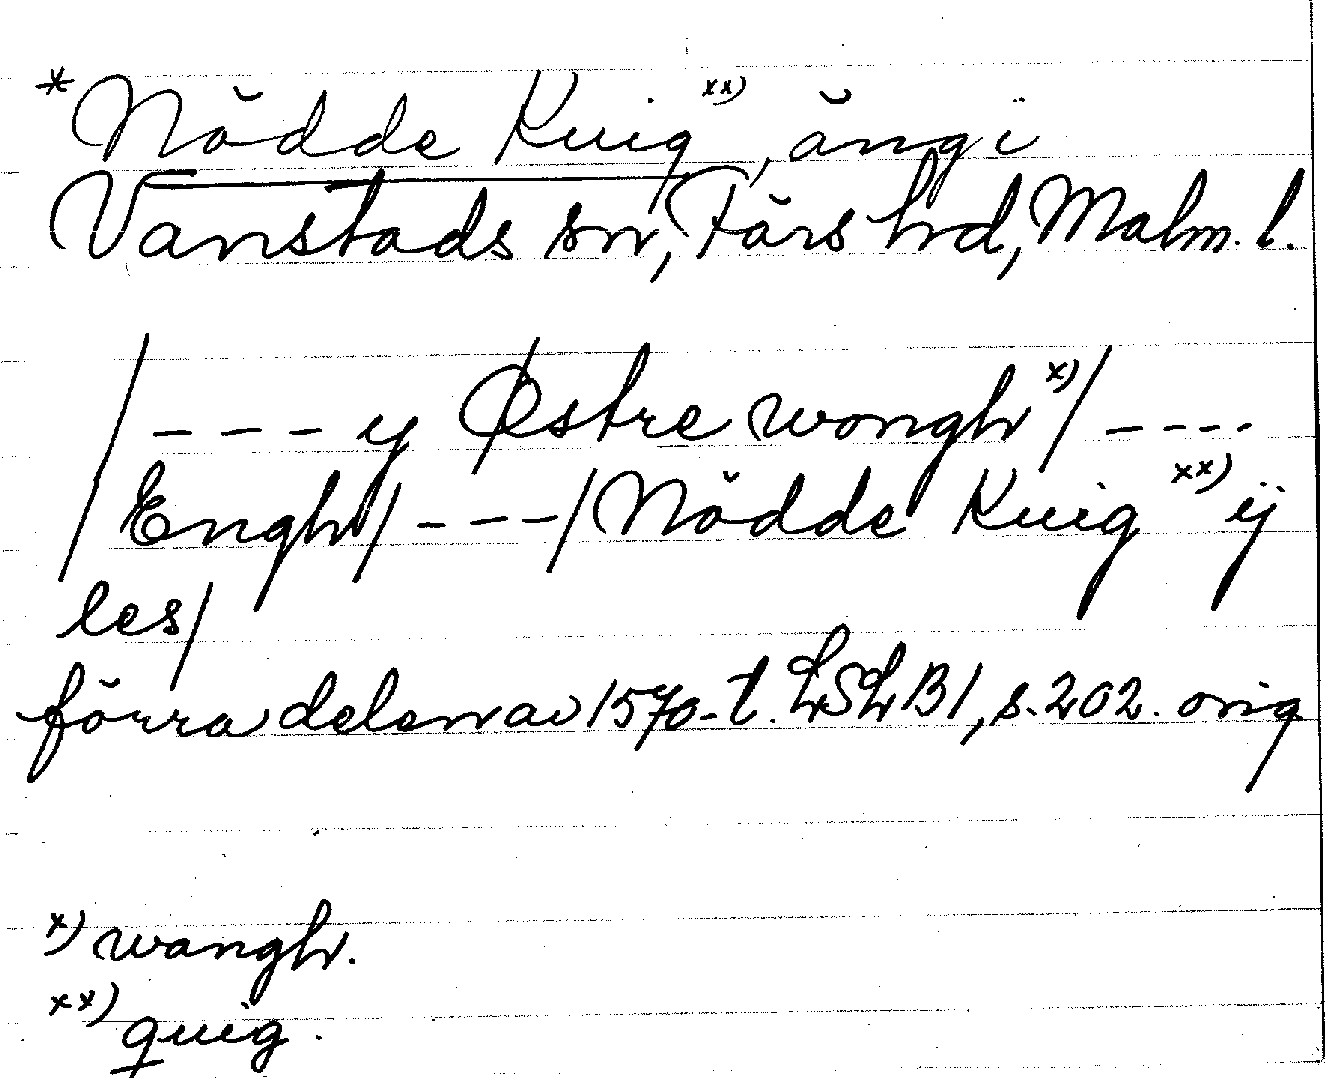 *Nödde Kuig xx), äng i
Vanstads sn, Färs hrd, Malm. l.
/ - - - y Østre wongh x) / - - - -
/ Engh / - - - / Nödde Kuig xx) ij
les /
förra delen av 1570-t. LSLB1, s. 202. orig
x) wangh.
xx) quig.